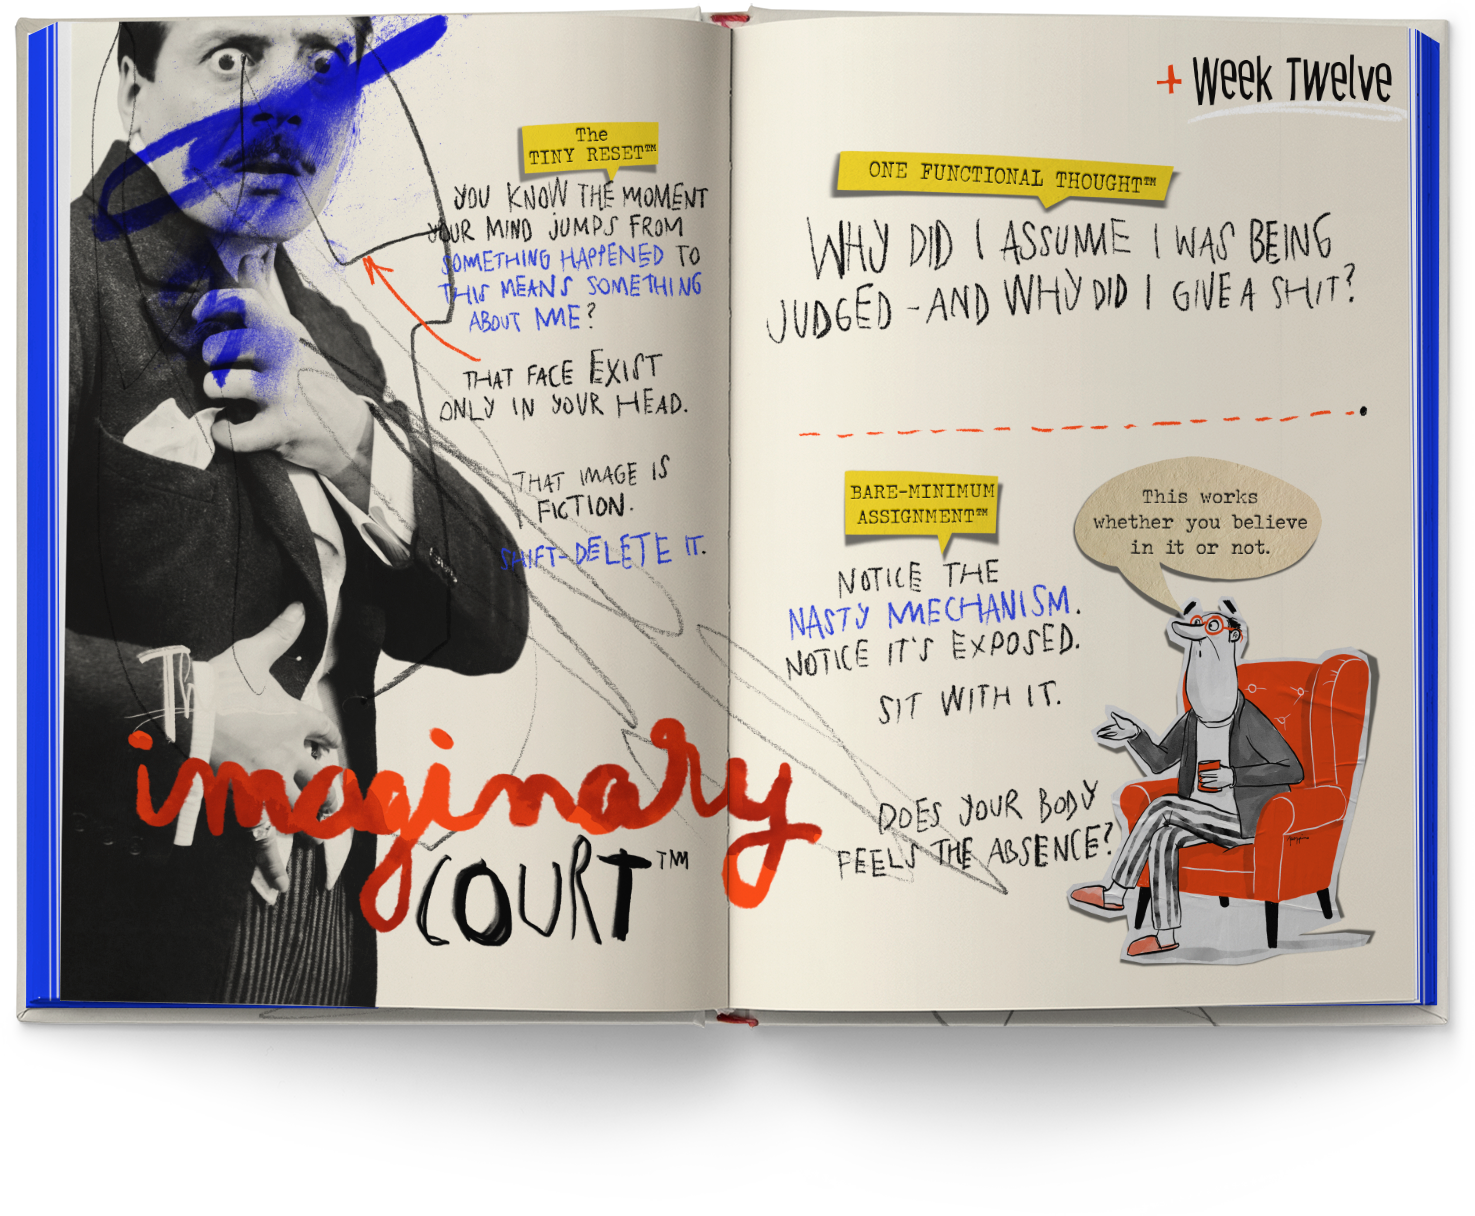 The
TINY RESET™
YOU KNOW THE MOMENT
YOUR MIND JUMPS FROM
SOMETHING HAPPENED TO
THIS MEANS SOMETHING
ABOUT ME?
THAT FACE EXIST
ONLY IN YOUR HEAD.
THAT IMAGE IS
FICTION.
SHIFT-DELETE IT.
The
imaginary
COURT™
+ Week Twelve
ONE FUNCTIONAL THOUGHT™
WHY DID I ASSUME I WAS BEING
JUDGED - AND WHY DID I GIVE A SHIT?
BARE-MINIMUM
ASSIGNMENT™
NOTICE THE
NASTY MECHANISM.
NOTICE IT'S EXPOSED.
SIT WITH IT.
DOES YOUR BODY
FEELS THE ABSENCE?
This works
whether you believe
in it or not.